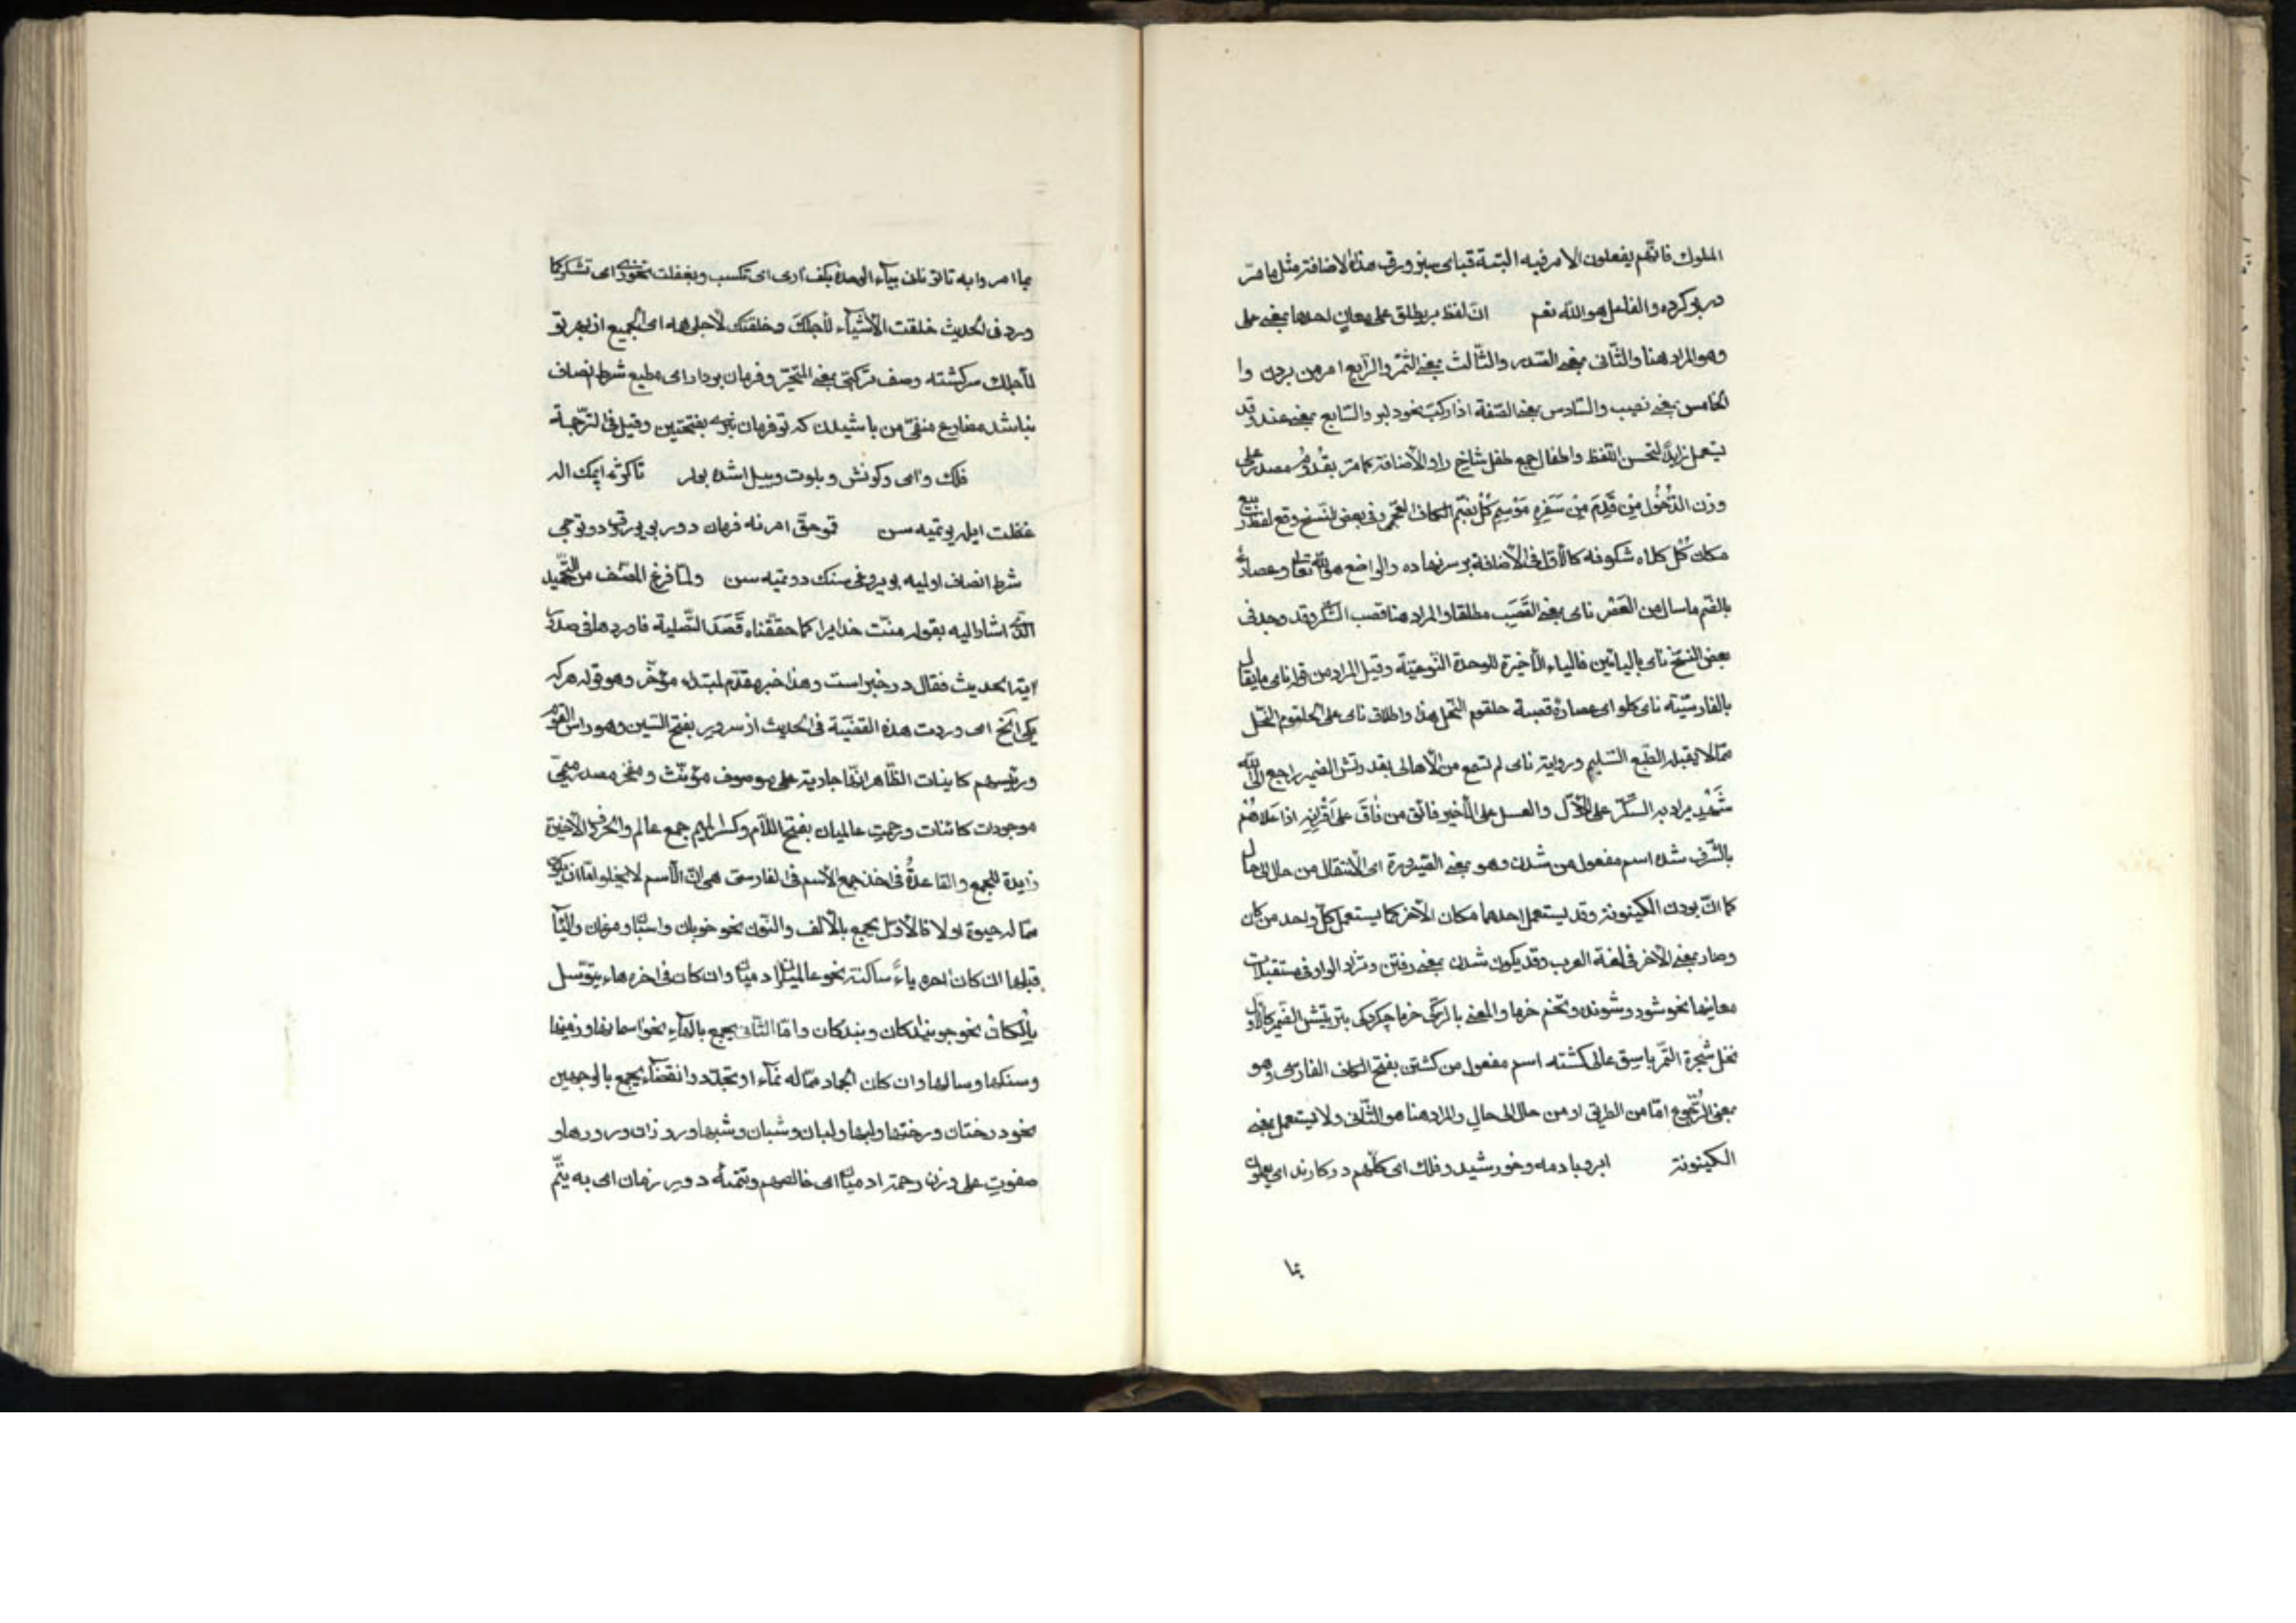 الملوك فانّهم يفعلون الامر فيه البتة قباى سبز ورق هذه الاضافة مثل ما مرّ
در بر كرده والفاعل هو الله نعم انّ لفظ بر يطلق على معان احدها بمعنى على
وهو المراد هنا والثّانى بمعنى الصّدر والثّالث بمعنى الثّمر والرّابع امر من بردن وا
لخامس بمعنى نصيب والسّادس بمعنى الصّفة اذا ركب نحو دلبر والسّابع بمعنى عند وقد
يستعمل زايدًا لتحسن اللّفظ واطفال جمع طفل شاخ را والاضافة كما مرّ بقُدُوم مصدر على
وزن الدُّخُول مِنْ قَدِمَ مِنْ سَفَرِهِ مَوْسِمِ كُل بضمّ الكاف العجمى وفى بعض النّسخ وقع لفظ ربيع
مكان كُل كلاه شكوفه كالاوّل فى الاضافة بر سر نهاده والواضع هو الله تعالى وعصارهٔ
بالضّم ما سال من العَصْر ناى بمعنى القَصَب مطلقا والمراد هنا قصب السّكّر وقد وجد فى
بعض النسخ نايى باليائين فالياء الاخيرة للوحدة النّوعيّة وقيل المراد من قوله ناى ما يقال
بالفارسيّة ناى كلو اى عصارة قصبة حلقوم النحل هذا واطلاق ناى على الحلقوم النحل
ممّا لا يقبله الطّبع السّليم ورواية ناى لم تسمع من الاهالى بقدرتش الضمير راجع الى الله
شَهْد يراد به السّكّر على الاوّل والعسل على الاخير فائق من فَاقَ عَلى اَقْرَانِهِ اذا عَلَاهُمْ
بالشّرف شده اسم مفعول من شدن وهو بمعنى الصّيرورة اى الانتقال من حال الى حال
كما انّ بودن الكينونة وقد يستعمل احدهما مكان الآخر كما يستعمل كلّ واحد من كان
وصار بمعنى الآخر فى لغة العرب وقد يكون شدن بمعنى رفتن وتزاد الواو فى مستقبلات
معانيها نحو شود وشونده وتخم خرما والمعنى بالتركى خرما چكردكى بتربيتش الضمير كالاول
نخل شجرة التّمر باسق عالى كشته اسم مفعول من كشتن بفتح الكاف الفارسى وهو
بمعنى الرُّجوع امّا من الطريق او من حال الى حال والمراد هنا هو الثّانى ولا يستعمل بمعنى
الكينونة ابر وباد ومه وخورشيد وفلك اى كلّهم در كارند اى يعملون
بما
بما امروا به تا تو نانى بياء الوحدة بكف ارى اى تكسب وبغفلت نخورى اى تشكر كما
ورد فى الحديث خلقت الاشياء لأجلك وخلقتك لأجلى همه اى الجميع از بهر تو
لأجلك سركشته وصف تركيبى بمعنى المتحيّر وفرمان بردار اى مطيع شرط انصاف
نباشد مضارع منفىّ من باشيدن كه تو فرمان نبرى بفتحتين وقيل فى الترجمة
فلك واى وكونش وبلوت وييل اشده بولر تا كوته ايمك اله
غفلت ايله يوتميه سن قمو حقّ امرنه فرمان دور بى يورق دوتوجى
شرط انصاف اولميه بويروغى سنك دوتميه سن ولمّا فرغ المصنف من التحميد
الذى اشار اليه بقوله منّت خدايرا كما حقّقناه قَصَدَ التّصلية فاوردها فى صدد
اية الحديث فقال در خبراست وهذا خبر مقدّم لمبتداء مؤخّر وهو قوله هركه
يكى الخ اى وردت هذه القضيّة فى الحديث از سرور بفتح السّين وهو راس القوم
ورئيسهم كاينات الظّاهر انّها جارية على موصوف مؤنّث ومفخر مصدر ميمىّ
موجودات كائنات ورحمت عالميان بفتح اللّام وكسر الميم جمع عالم والحرف الاخيرة
زايدة للجمع والقاعدة فى اخذ جمع الاسم فى الفارسى هى انّ الاسم لا يخلو امّا ان يكون
ممّا له حيوة او لا فالاوّل يجمع بالالف والنّون نحو خوبان واسبان ومرغان والياء
قبلها ان كان اخره ياءً ساكنة نحو عالميان وادميان وان كان فى اخره هاء يتوسّل
بالكاف نحو جويندكان وبندكان وامّا الثّانى يجمع بالهاء نحو اسمانها وزمينها
وسنكها وسالها وان كان الجماد ممّا له نماء او تجدّد وانقضاء يجمع بالوجهين
نحو درختان ودرختها ولبها ولبان وشبان وشبها وروزان وروزها و
صفوت على وزن رحمة ادميان اى خالصهم وتتمّهٔ دور زمان اى به يتمّ